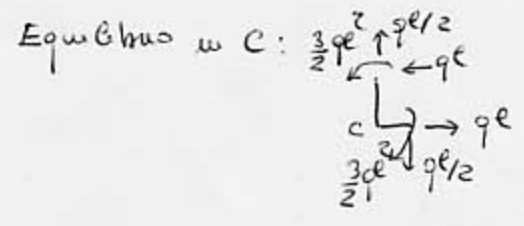 Equilibrio in C: 3/2 qℓ² ↑ qℓ/2
← qℓ
C → qℓ
3/2 qℓ² qℓ/2